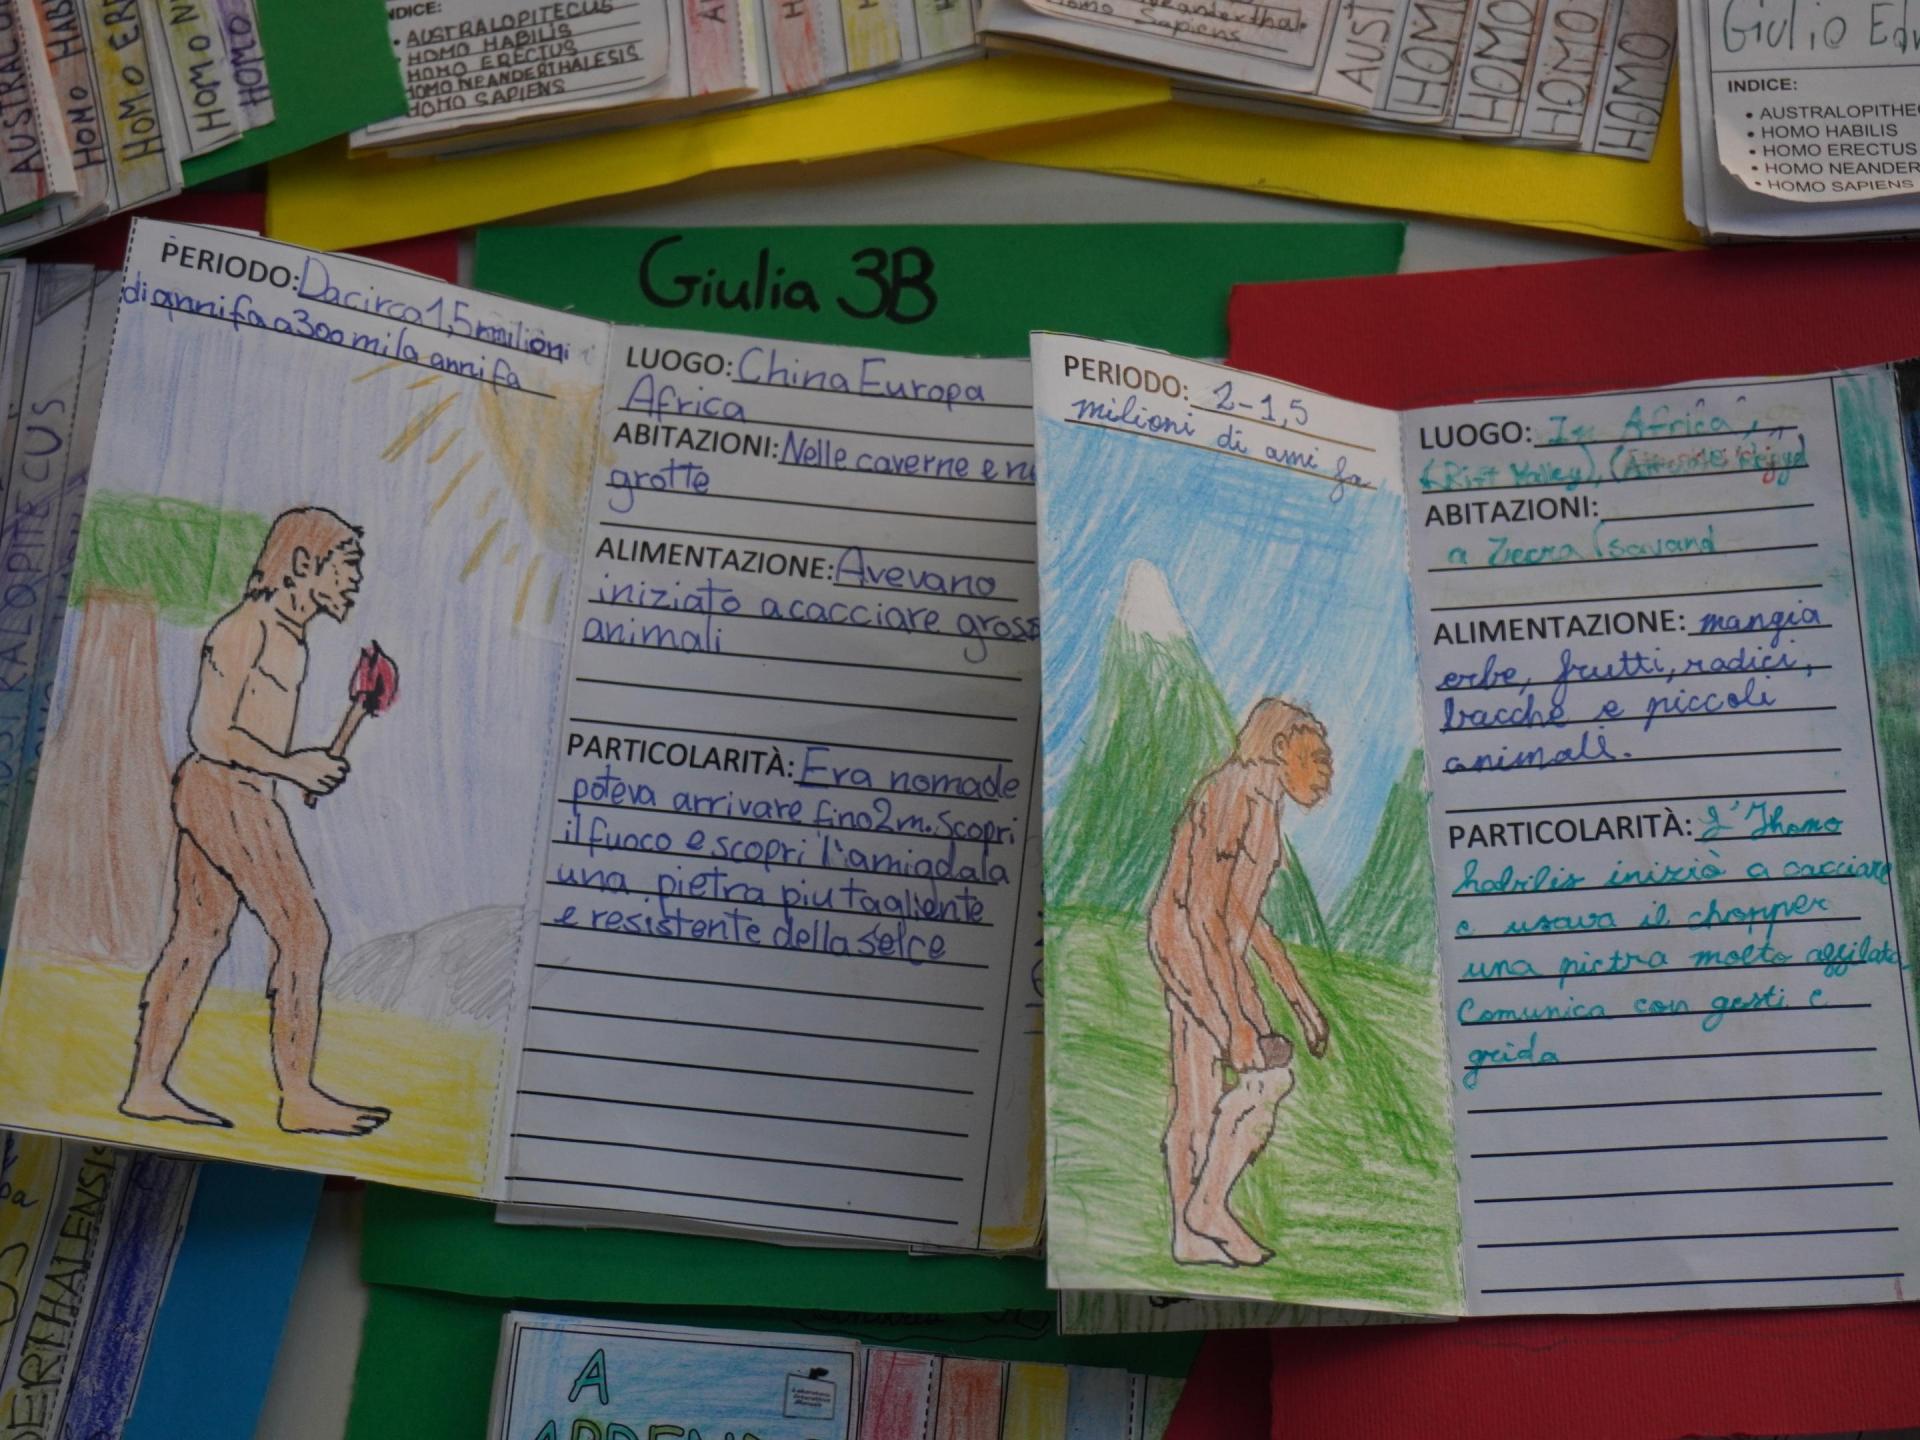 AUSTRAL
HOMO HAB
HOMO ER
HOMO N
HOMO
NDICE:
• AUSTRALOPITECUS
• HOMO HABILIS
HOMO ERECTUS
HOMO NEANDERTHALESIS
HOMO SAPIENS
Homo Sapiens
AUST
HOMO
HOMO
HOMO
HOMO
Giulio Edu
INDICE:
• AUSTRALOPITHE
• HOMO HABILIS
• HOMO ERECTUS
• HOMO NEANDER
• HOMO SAPIENS
Giulia 3B
PERIODO: Da circa 1,5 milioni
di anni fa a 300 mila anni fa
LUOGO: China Europa
Africa
ABITAZIONI: Nelle caverne e n
grotte
ALIMENTAZIONE: Avevano
iniziato a cacciare gross
animali
PARTICOLARITÀ: Era nomade
poteva arrivare fino 2 m. Scopri
il fuoco e scopri l'amigdala
una pietra piu tagliente
e resistente della selce
PERIODO: 2-1,5
milioni di anni fa
LUOGO: In Africa,
(Rift Valley), (
ABITAZIONI:
a
ALIMENTAZIONE: mangia
erbe, frutti, radici,
bacche e piccoli
animali.
PARTICOLARITÀ: L'Ihomo
habilis iniziò a cacciare
e usava il chopper
una pietra molto affilata
Comunica con gesti e
grida
DERTHALENSI
A